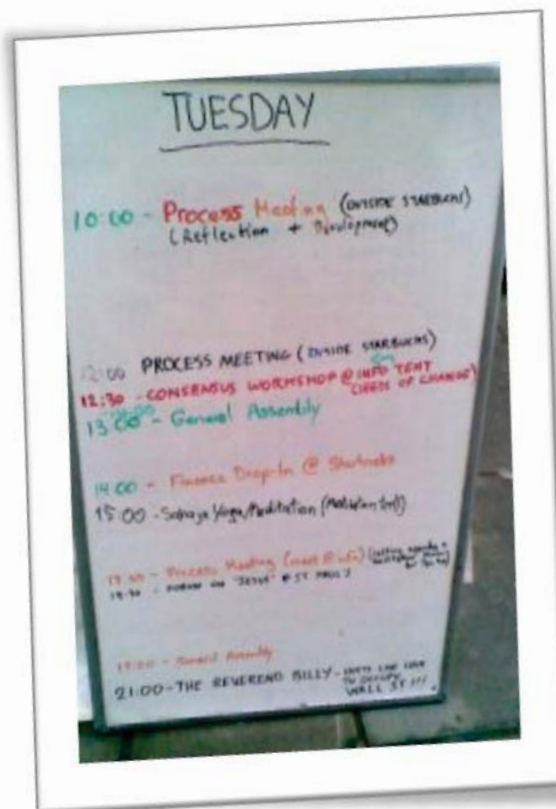 TUESDAY
10:00 - Process Meeting (OUTSIDE STARBUCKS)
(Reflection + Development)
12:00 PROCESS MEETING (INSIDE STARBUCKS)
12:30 - CONSENSUS WORKSHOP @ INFO TENT
(SEEDS OF CHANGE)
13:00 - General Assembly
14:00 - Finance Drop-In @ Starbucks
15:00 - Sahaja Yoga/Meditation (Meditation Tent)
Process Meeting (meet @ info)
FORUM ON "JESUS" @ ST PAUL'S
19:00 - General Assembly
21:00 - THE REVEREND BILLY -
TO OCCUPY
WALL ST !!!